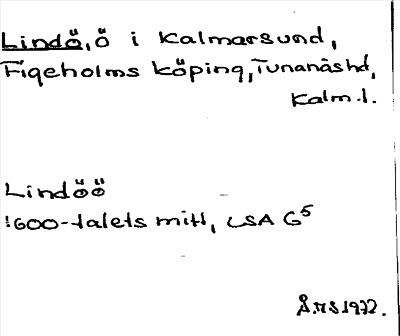 Lindö, ö i Kalmarsund,
Figeholms köping, Tunanäs hd,
Kalm. l.
Lindöö
1600-talets mitt, LSA G5
Å.M.S 1972.